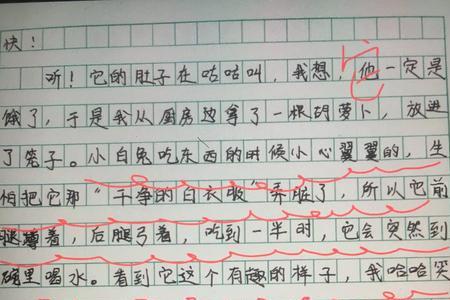 快！
听！它的肚子在咕咕叫，我想，他一定是
它
饿了，于是我从厨房边拿了一根胡萝卜，放进
了笼子。小白兔吃东西的时候小心翼翼的，生
怕把它那“干净的白衣服”弄脏了，所以它前
腿蹲着，后腿弓着，吃到一半时，它会突然到
碗里喝水。看到它这个有趣的样子，我哈哈笑